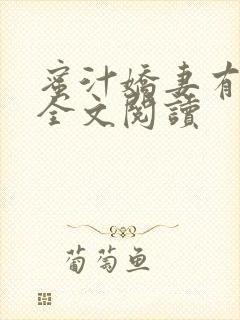 蜜汁嬌妻有
全文閱讀
葡萄鱼